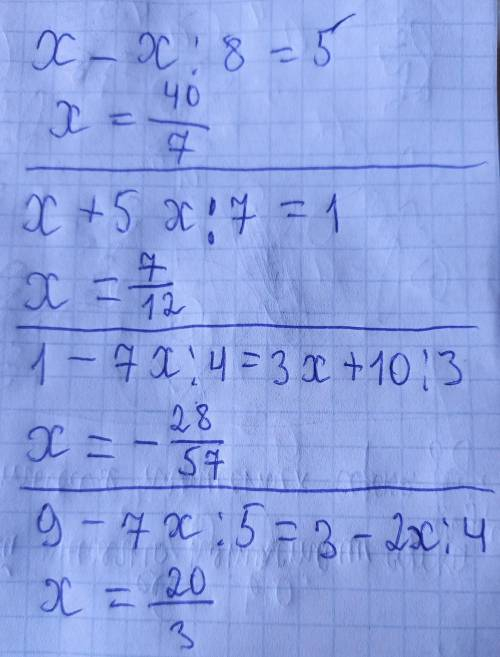 x - x : 8 = 5
x = 40/7
x + 5x : 7 = 1
x = 7/12
1 - 7x : 4 = 3x + 10 : 3
x = - 28/57
9 - 7x : 5 = 3 - 2x : 4
x = 20/3